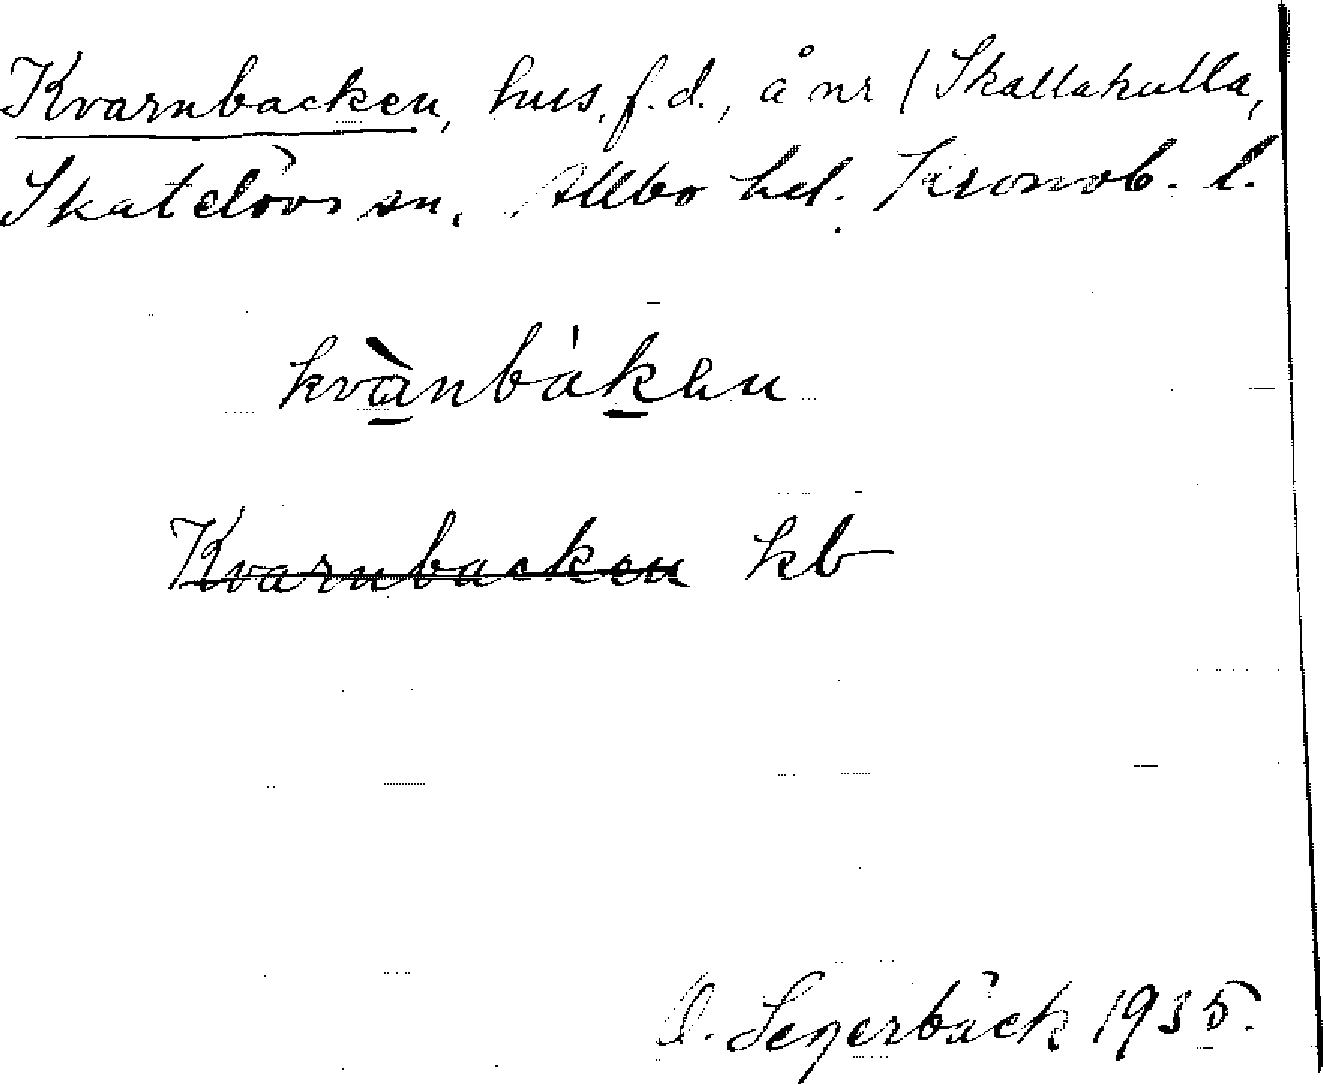 Kvarnbacken, hus, f.d., å nr 1 Skallahulla,
Skatelövs sn. Allbo hd. Kronob. l.
kvànbákεn
Kvarnbacken kb
O. Segerbäck 1935.